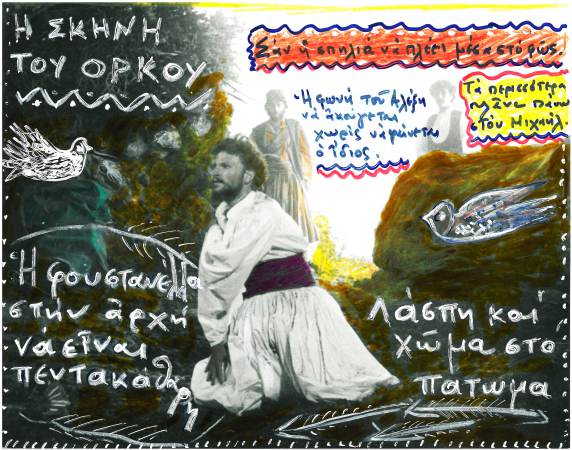 Η ΣΚΗΝΗ
ΤΟΥ ΟΡΚΟΥ
Σὰν ἡ σπηλιὰ νὰ πλέει μέσα στὸ φῶς.
Τὰ περισσότερα
πλάνα πάνω
στὸν Μιχαήλ.
Ἡ φωνὴ τοῦ Ἀλέξη
νὰ ἀκούγεται
χωρὶς νὰ φαίνεται
ὁ ἴδιος.
Ἡ φουστανέλλα
στὴν ἀρχὴ
νὰ εἶναι
πεντακάθα
ρη
Λάσπη καὶ
χῶμα στὸ
πάτωμα